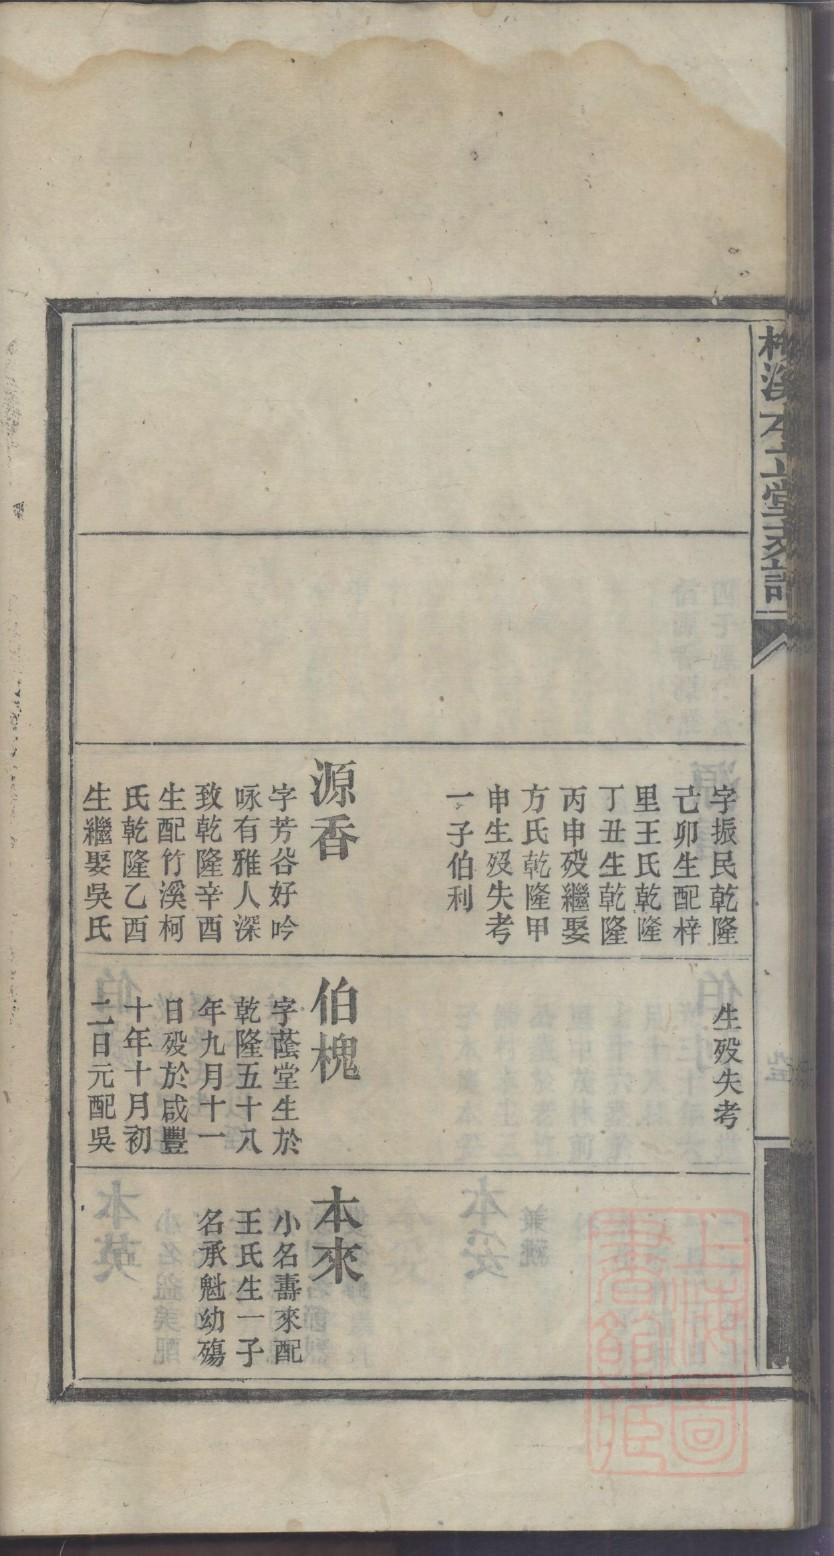 溪本立堂支譜
字振民乾隆
己卯生配梓
里王氏乾隆
丁丑生乾隆
丙申歿繼娶
方氏乾隆甲
申生歿失考
一子伯利
源香
字芳谷好吟
咏有雅人深
致乾隆辛酉
生配竹溪柯
氏乾隆乙酉
生繼娶吳氏
生歿失考
伯槐
字蔭堂生於
乾隆五十八
年九月十一
日歿於咸豐
十年十月初
二日元配吳
本來
小名壽來配
王氏生一子
名承魁幼殤